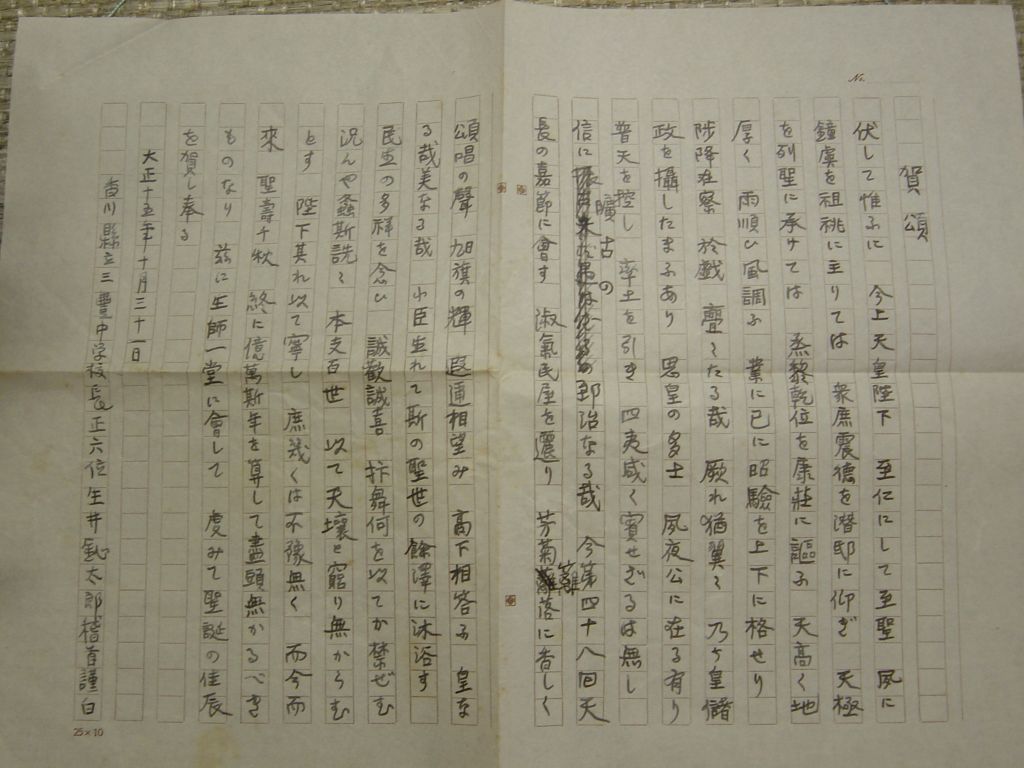 No.
賀頌
伏して惟ふに 今上天皇陛下 至仁にして至聖 夙に
鐘虡を祖祧に主りては 衆庶震德を潜邸に仰ぎ 天極
を列聖に承けては 烝黎乾位を康莊に謳ふ 天高く地
厚く 雨順ひ風調ふ 業に已に昭驗を上下に格せり
陟降在察 於戲 亹々たる哉 厥れ猶翼々 乃ち皇儲
政を攝したまふあり 思皇の多士 夙夜公に在る有り
普天を控し 率土を引き 四夷咸く賓せざるは無し
信に 曠古の 郅治なる哉 今第四十八回天
長の嘉節に會す 淑氣民屋を遶り 芳菊籬落に香しく
頌唱の聲 旭旗の輝 遐邇相望み 高下相答ふ 皇な
る哉美なる哉 小臣生れて斯の聖世の餘澤に沐浴す
民生の多祥を念ひ 誠歡誠喜 抃舞何を以てか禁ぜむ
况んや螽斯詵々 本支百世 以て天壤と窮り無からむ
とす 陛下其れ以て寧し 庶幾くは不豫無く 而今而
來 聖壽千秋 終に億萬斯年を算して盡頭無かるべき
ものなり 茲に生師一堂に會して 虔みて聖誕の佳辰
を賀し奉る
大正十五年十月三十一日
香川縣立三豊中学校長正六位生井 太郎稽首謹白
25×10